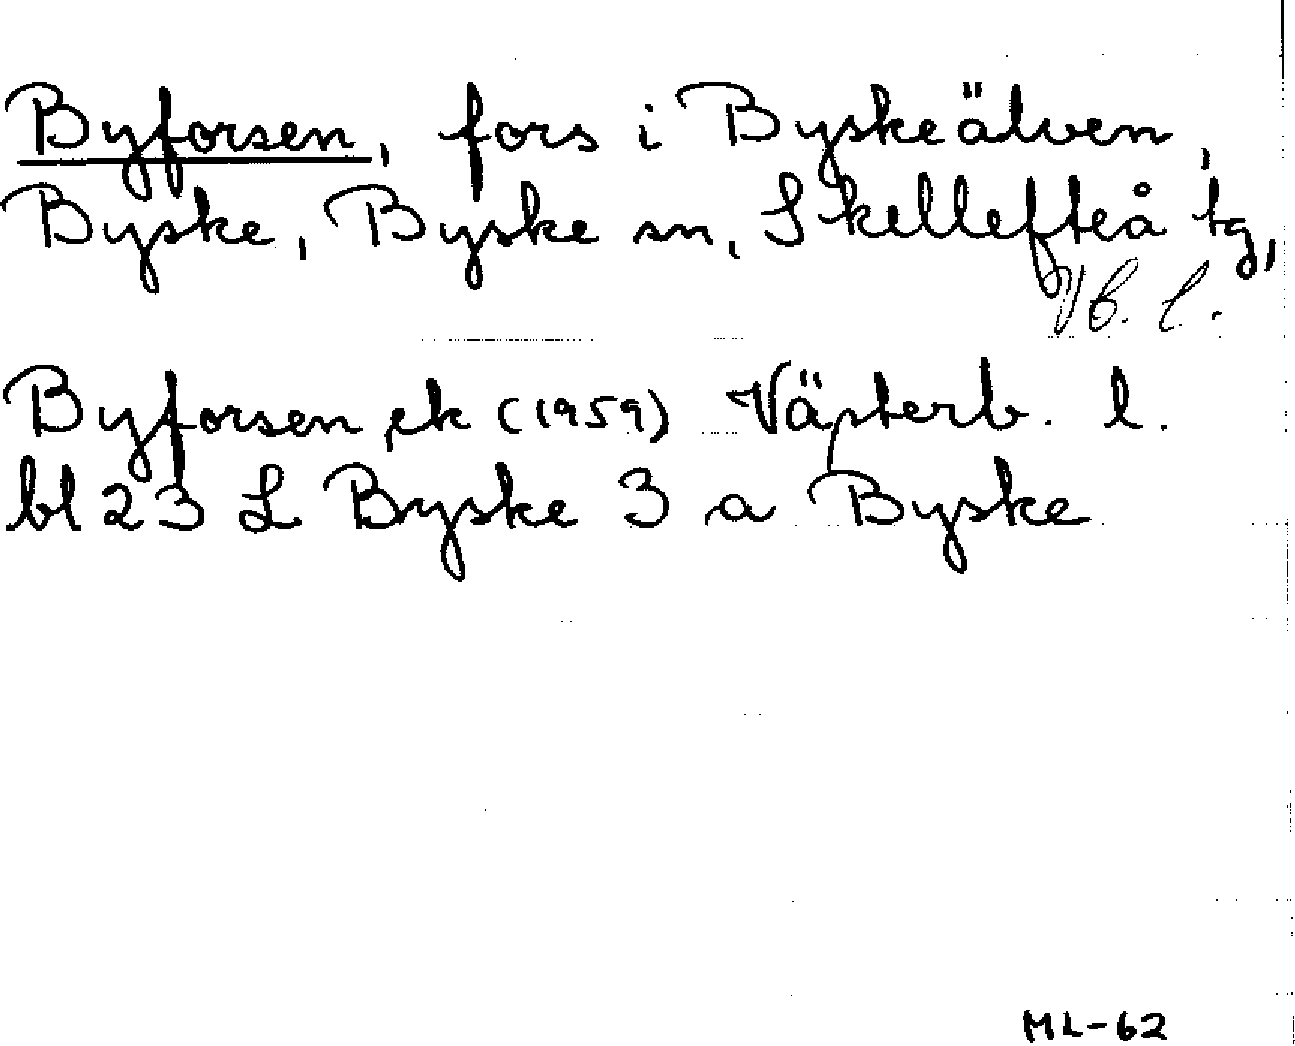 Byforsen, fors i Byskeälven,
Byske, Byske sn, Skellefteå tg,
Vb. l.
Byforsen ek (1959) Västerb. l.
bl 23 L Byske 3 a Byske
ML-62